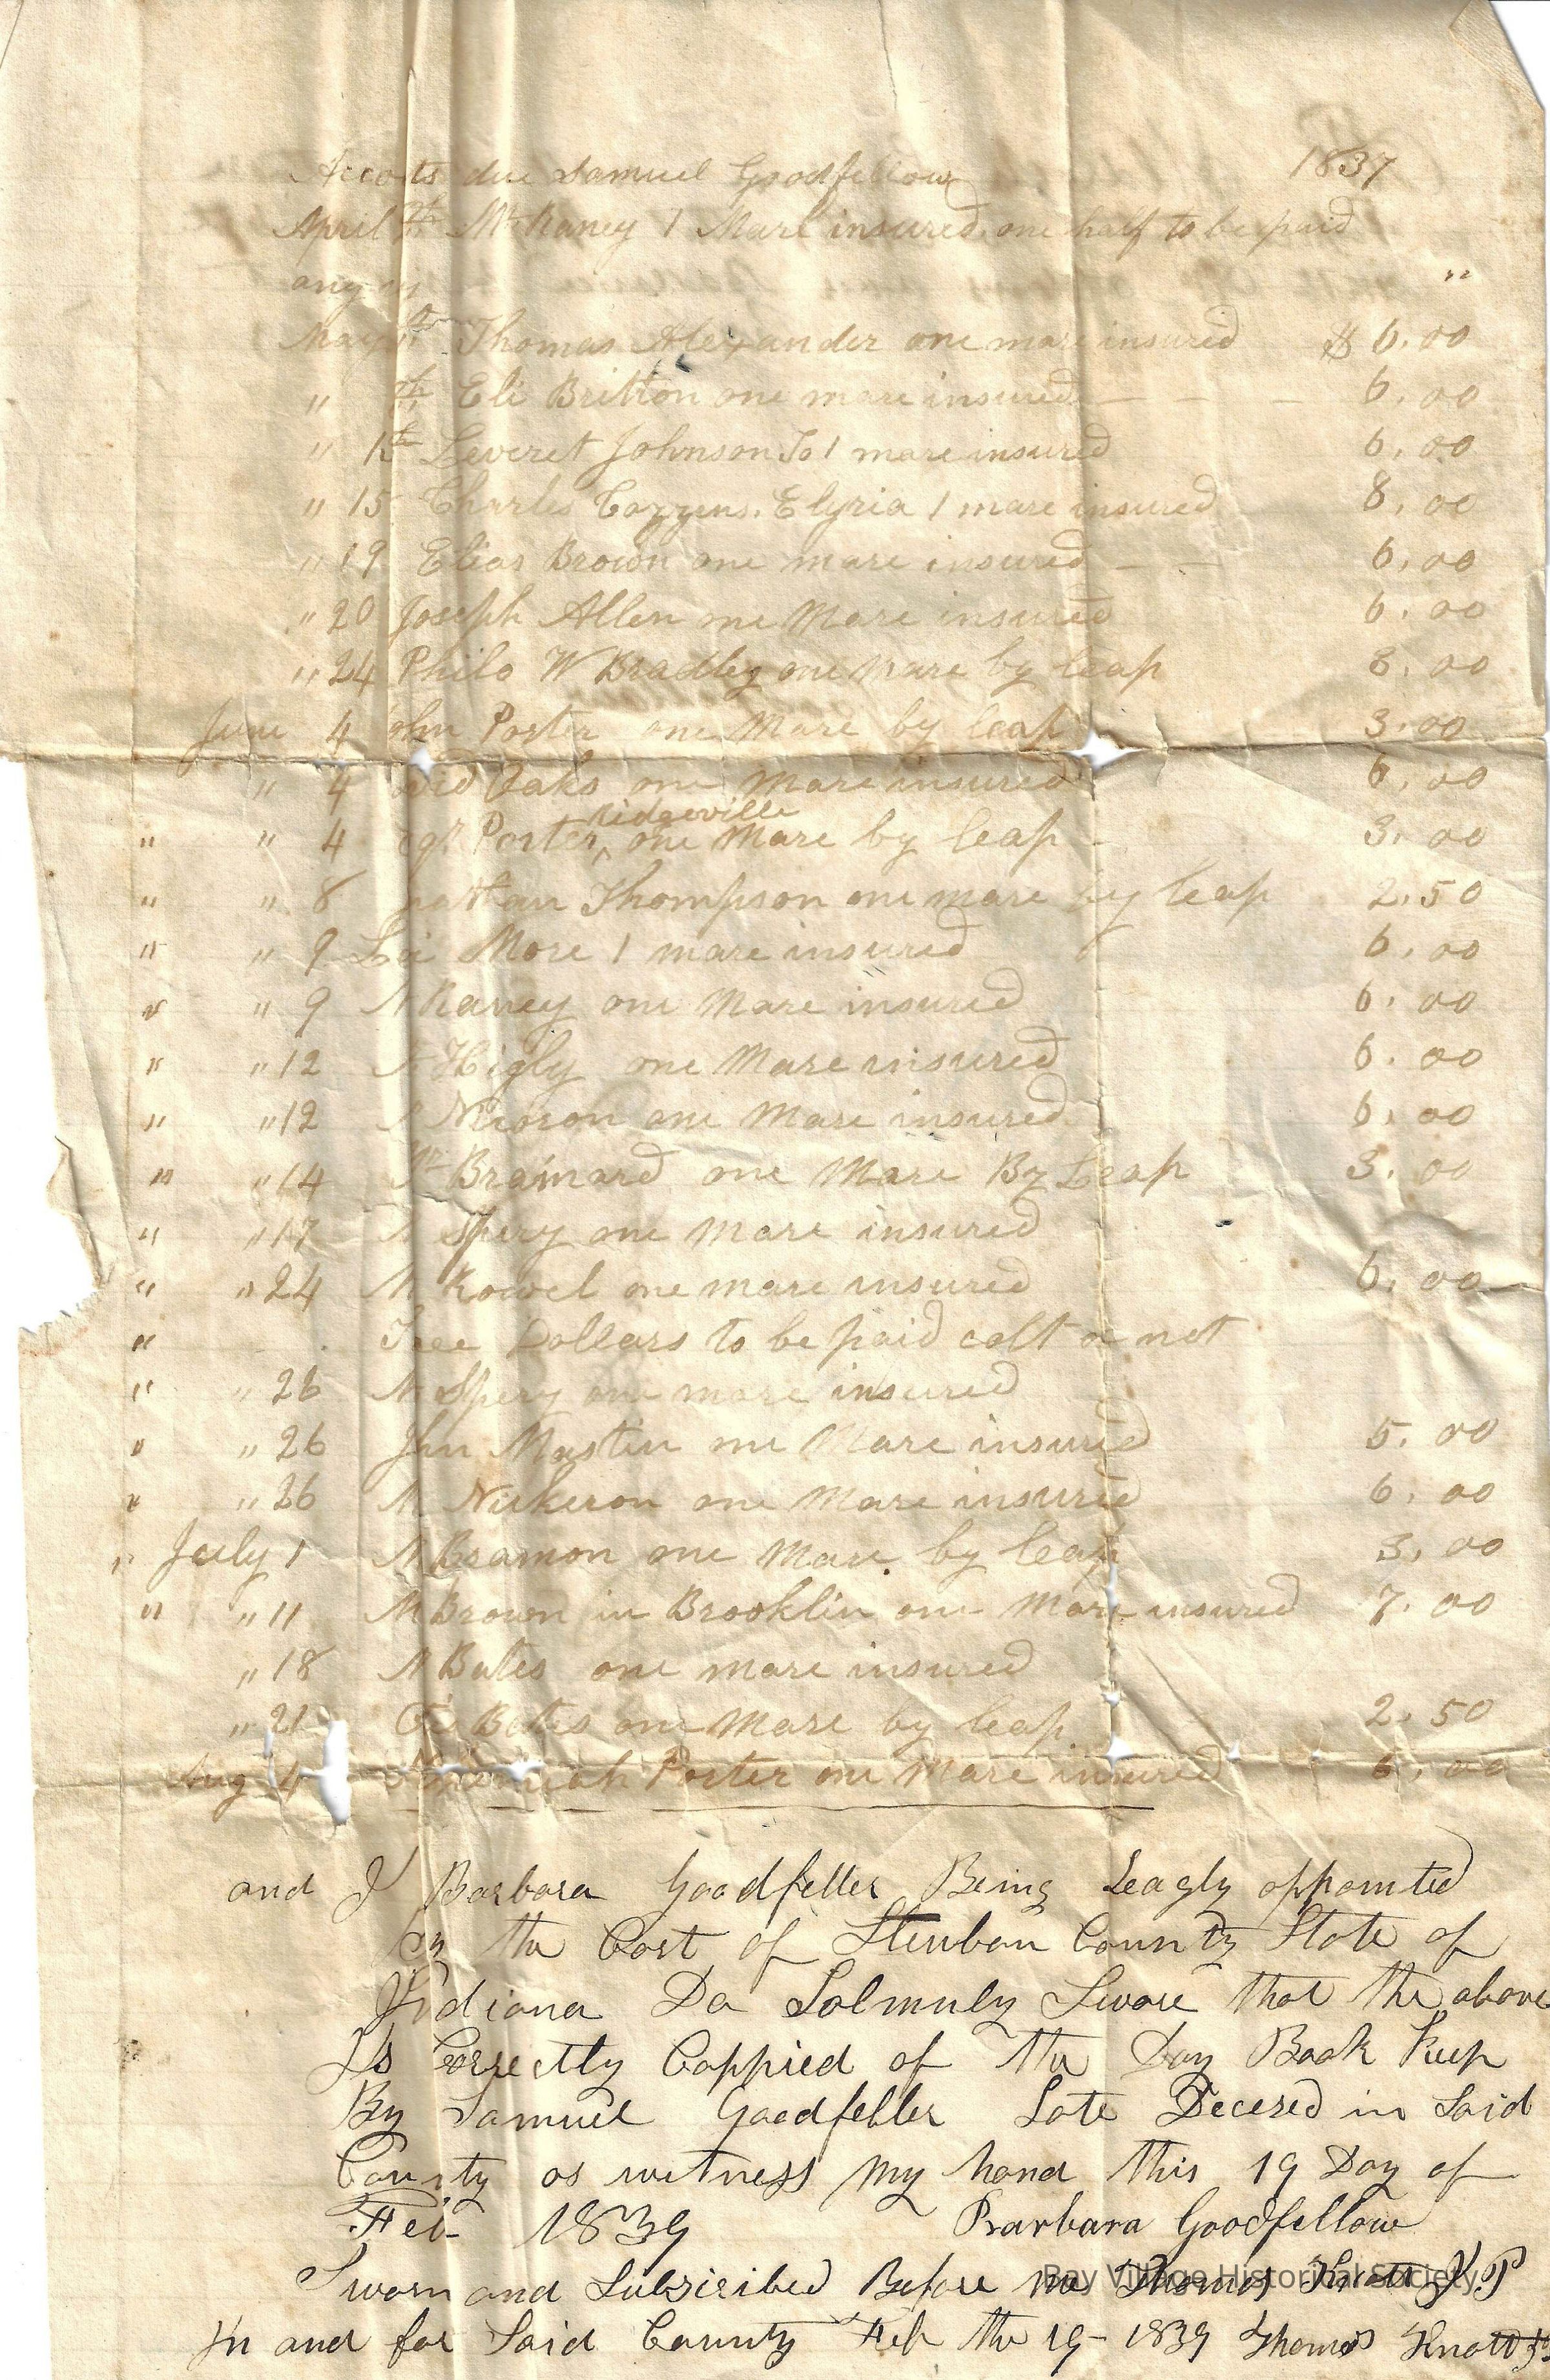 Accots due Samuel Goodfellow 1837
April Mr Raney 1 Mare insured one half to be paid
any "
May Thomas Alexander one mare insured $ 6.00
" Eli Britton one mare insured - - - 6.00
" Leveret Johnson To 1 mare insured 6.00
" 15 Charles Cozzens. Elyria 1 mare insured 8.00
" 19 Elias Brown one mare insured - - 6.00
" 20 Joseph Allen one Mare insured 6.00
" 24 Philo W Bradley one mare by leap 3.00
June 4 ohn Porter one Mare by leap 3.00
" 4 Oaks one Mare insured 6.00
ridgeville
" " 4 Porter ^ one Mare by leap - 3.00
" " 8 Thompson one mare by leap 2.50
" " 9 More 1 mare insured 6.00
" " 9 M Raney one Mare insured 6.00
" " 12 Higly one Mare insured 6.00
" " 12 one Mare insured 6.00
" " 14 Mr Brainard one Mare By Leap 3.00
" " 17 M Spery one Mare insured
" " 24 M Rowel one mare insured 6.00
" Tree Dollars to be paid colt or not
" " 26 M Spery one mare insured
" " 26 Jhn Mastin one Mare insured 5.00
" " 26 M Nickerson one Mare insured 6.00
" July 1 M one Mare by leap 3.00
" " 11 M Brown in Brooklin one Mare insured 7.00
" 18 M Bates one mare insured
" 21 Bates one Mare by leap 2.50
Aug 4 Porter one Mare insured 6.00
and I Barbara Goodfeller Being Leagly appointed
By the Cort of Steuben County State of
Indiana Do Solmnly Sware that the above
Is Correctly Coppied of the Day Book Keep
By Samuel Goodfeller Late Decesed in Said
County as witness my hand this 19 Day of
Feb 1839 Barbara Goodfellow
Sworn and Subscribed Before me Thomas Knott J.P
In and for Said County Feb the 19 - 1839 Thomas Knott
Bay Village Historical Society